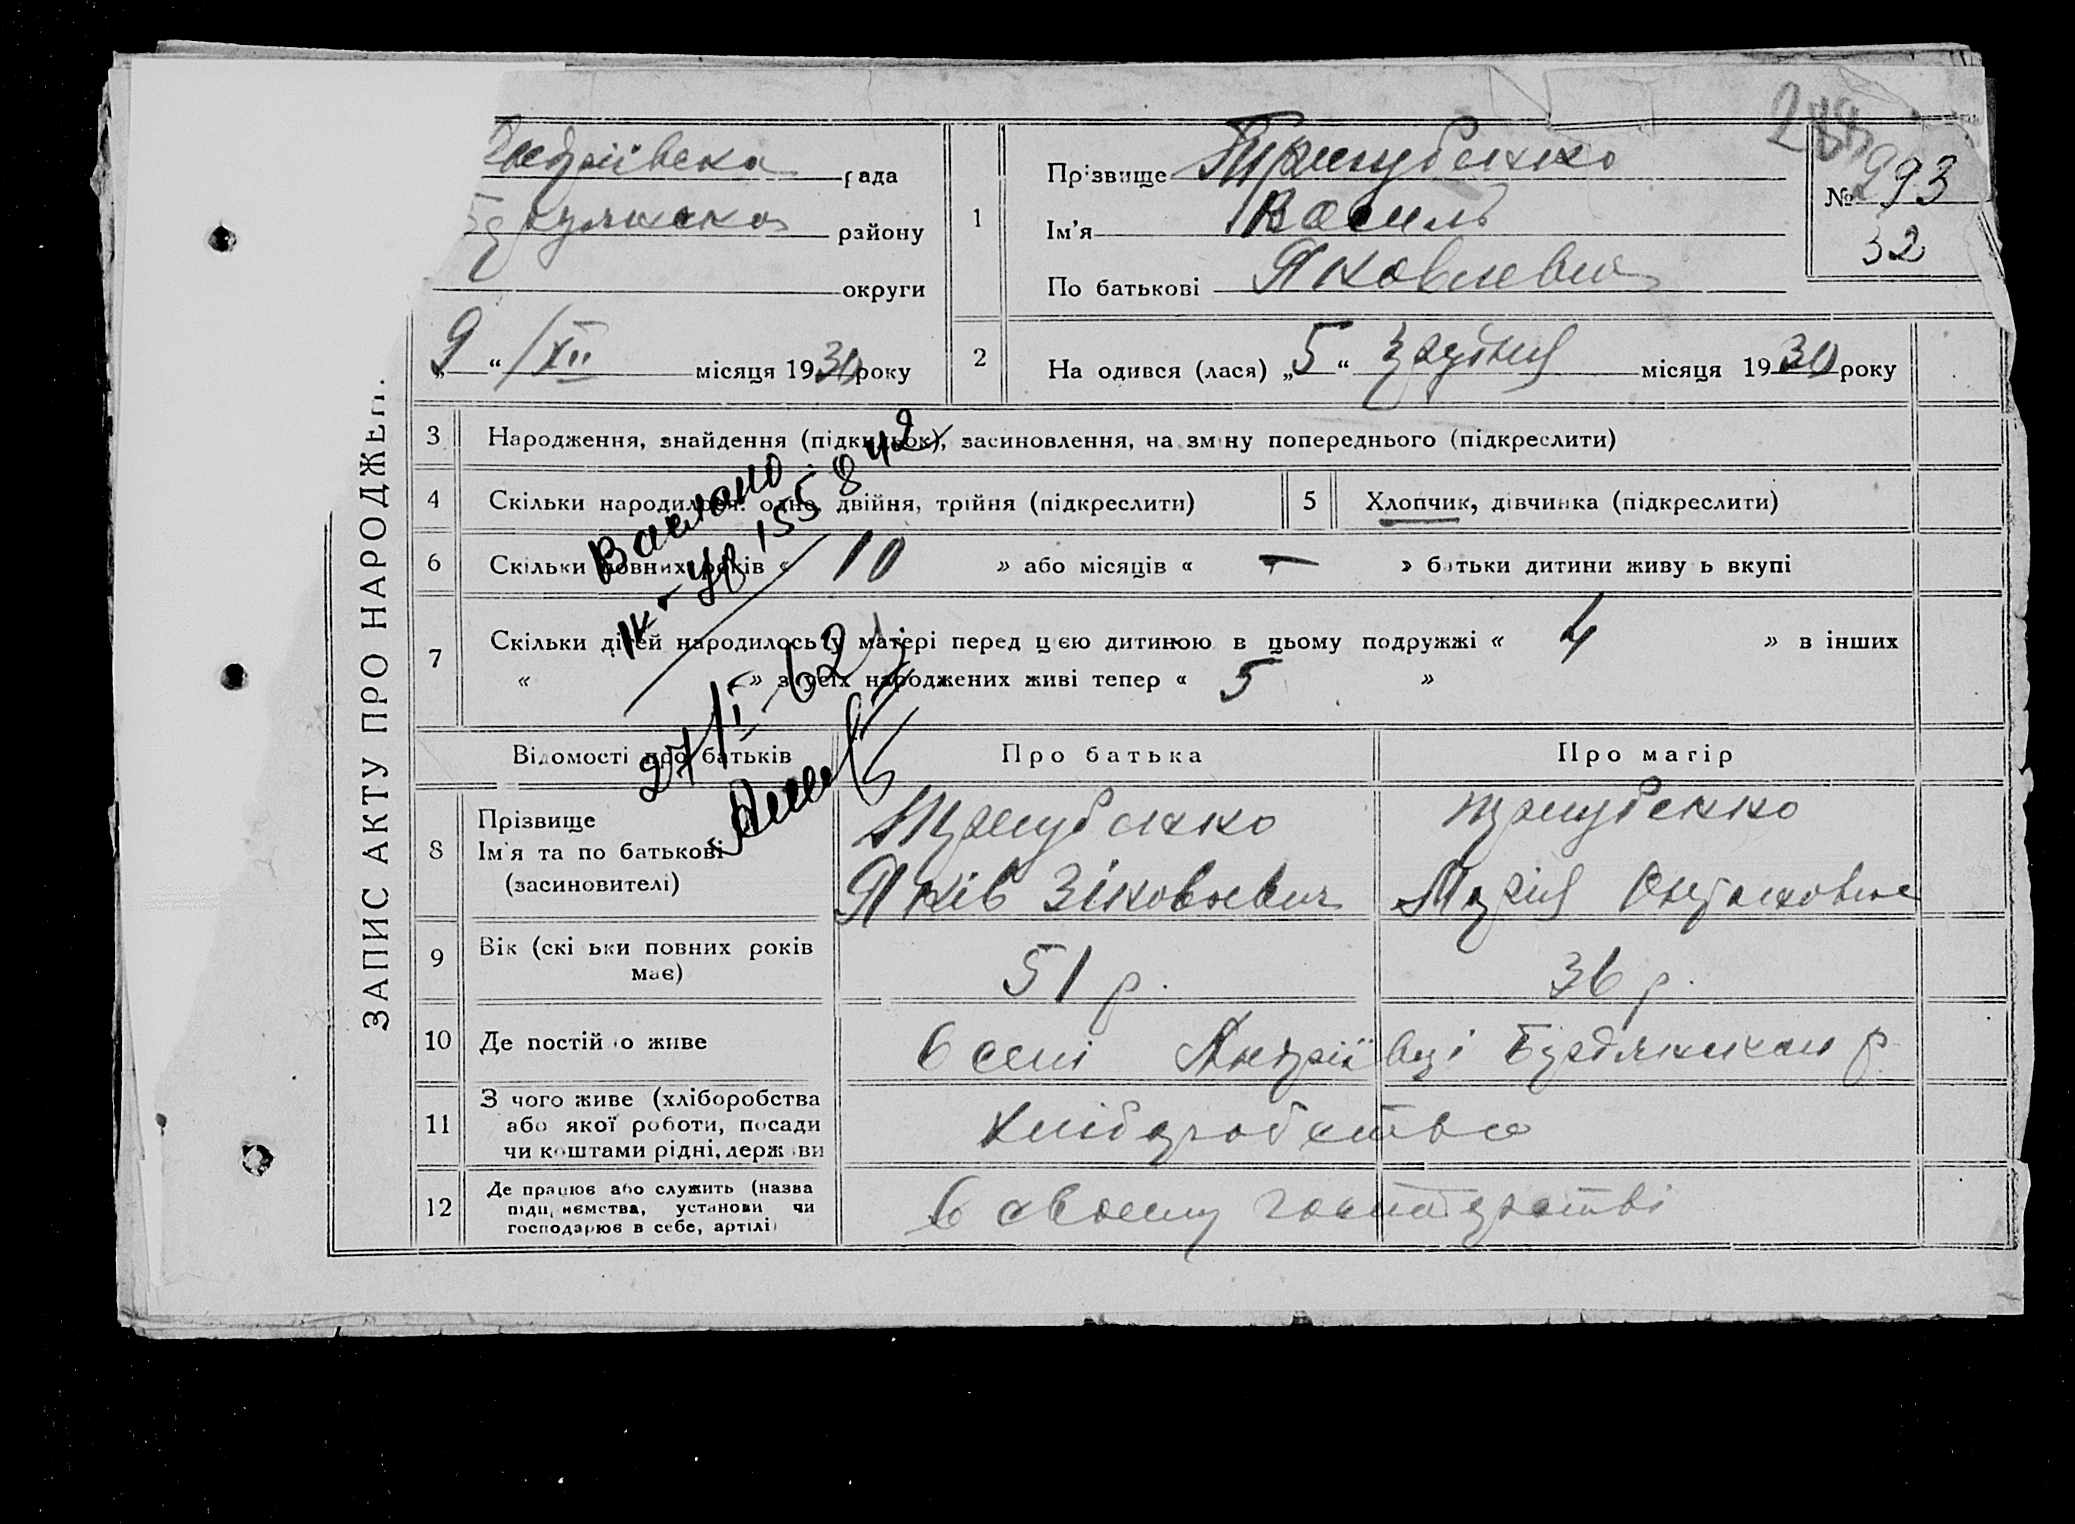 288
Андріївска рада
району
округи
„9“ /XII місяця 1930 року
1 Прізвище
Ім'я Василь
По батькові Яковлевич
№ 293
32
2 На одився (лася) „5“ грудня місяця 1930 року
ЗАПИС АКТУ ПРО НАРОДЖЕН
3 Народження, знайдення (підкидьок), засиновлення, на зміну попереднього (підкреслити)
4 Скільки народилося: одно, двійня, трійня (підкреслити)
5 Хлопчик, дівчинка (підкреслити)
6 Скільки повних років « 10 » або місяців « — » батьки дитини живу ь вкупі
7 Скільки дітей народилось у матері перед цією дитиною в цьому подружжі « 4 » в інших
« » з усіх народжених живі тепер « 5 »
155842
27/I-62
Відомості про батьків
Про батька
Про матір
8 Прізвище
Ім'я та по батькові
(засиновителі)
Яків Зіновьевич
Марія
9 Вік (скі ьки повних років
має)
51 р.
36 р.
10 Де постій о живе
в селі Андріївці р.
11 З чого живе (хліборобства
або якої роботи, посади
чи коштами рідні, держ ви
хліборобство
12 Де працює або служить (назва
підп иємства, установи чи
господарює в себе, артілі
в своєму господарстві